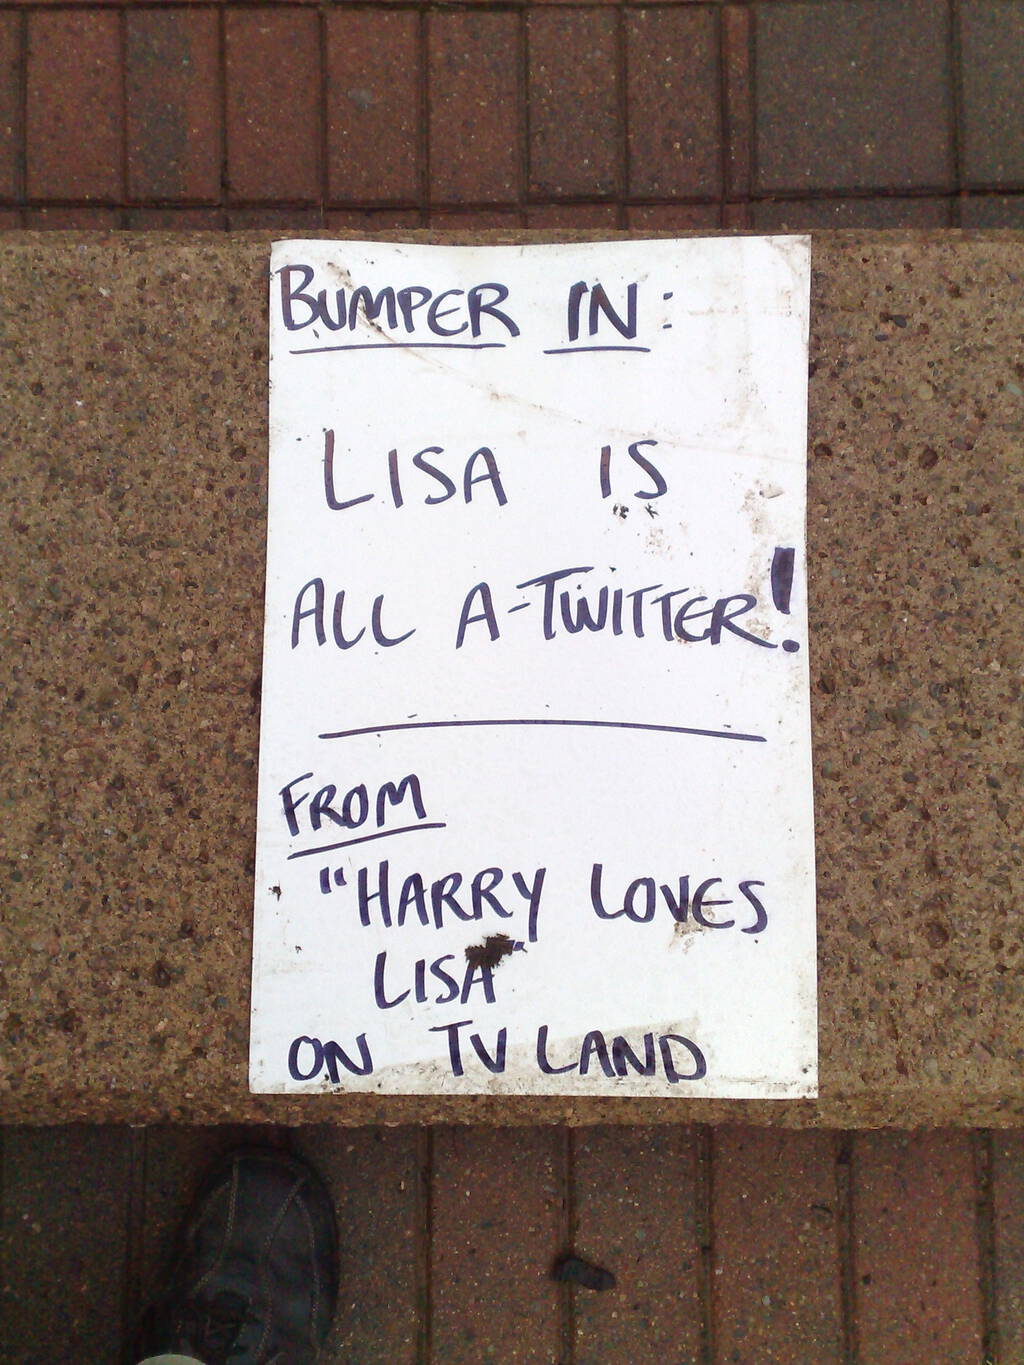 BUMPER IN:
LISA IS
ALL A-TWITTER!
FROM
"HARRY LOVES
LISA"
ON TV LAND